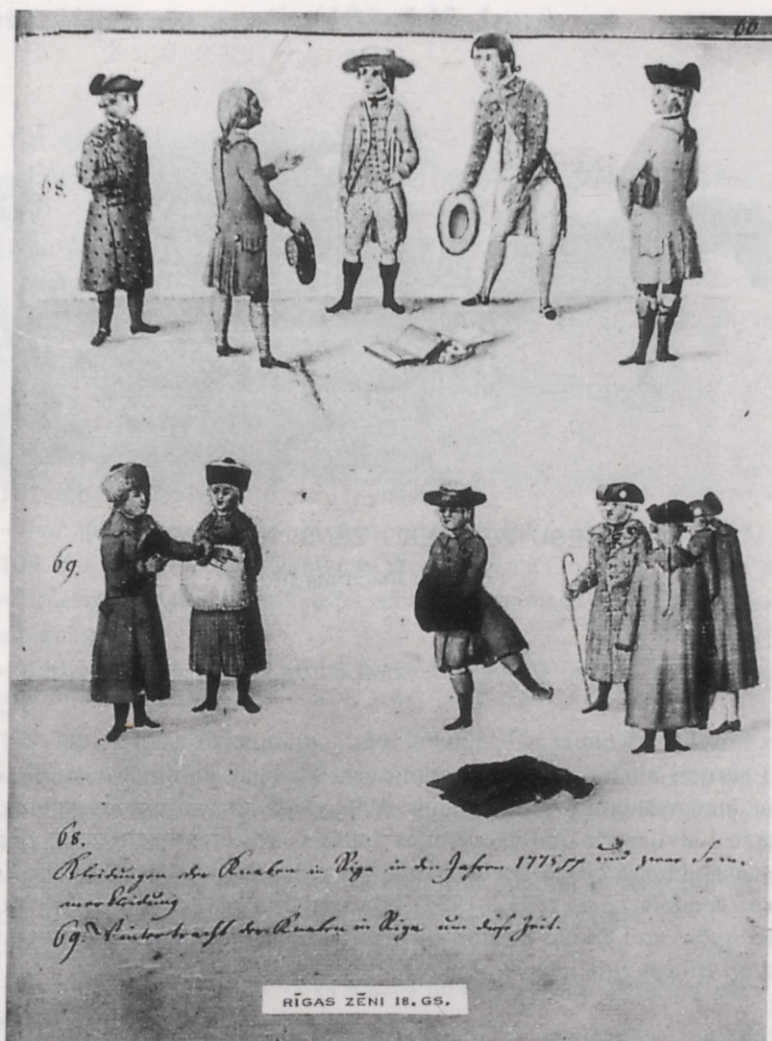 66
68.
69.
68.
Kleidungen der Knaben in Riga in den Jahren 1775 pp und zwar Som-
merkleidung
69. Wintertracht der Knaben in Riga um diese Zeit.
RĪGAS ZĒNI 18. GS.